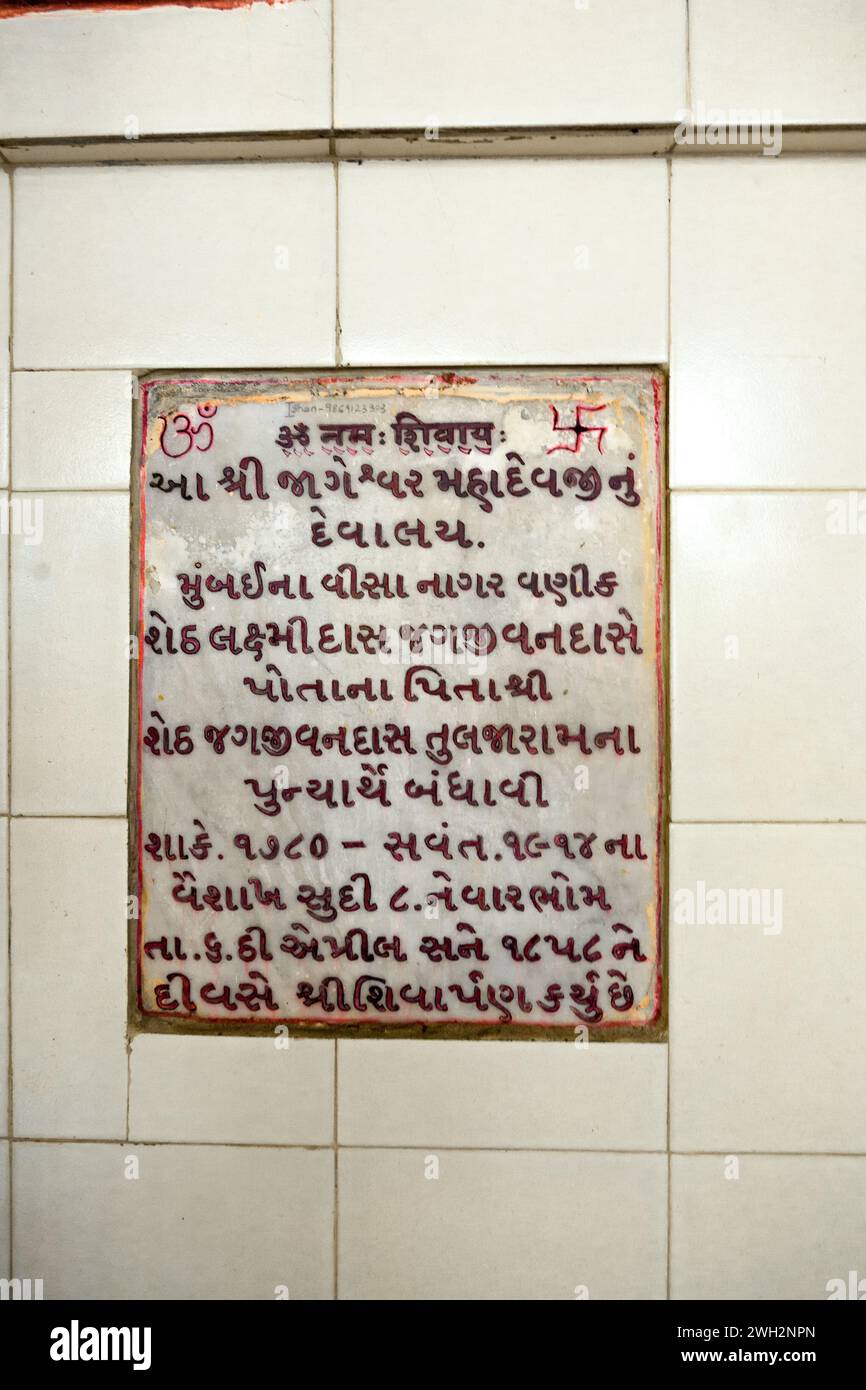 Ishan-9869123303
ॐ
ॐ नमः शिवायः
આ શ્રી જાગેશ્વર મહાદેવજીનું
દેવાલય.
મુંબઈના વીસા નાગર વણીક
શેઠ લક્ષ્મીદાસ જગજીવનદાસે
પોતાના પિતાશ્રી
શેઠ જગજીવનદાસ તુલજારામના
પુન્યાર્થે બંધાવી
શાકે. ૧૭૮૦ - સવંત. ૧૯-૧૪ના
વૈશાખ સુદી ૮. નેવારભોમ
તા. ૬. ઠી એપ્રીલ સને ૧૮૫૮ ને
દીવસે શ્રીશિવાર્પણ કર્યું છે
alamy
Image ID: 2WH2NPN
www.alamy.com